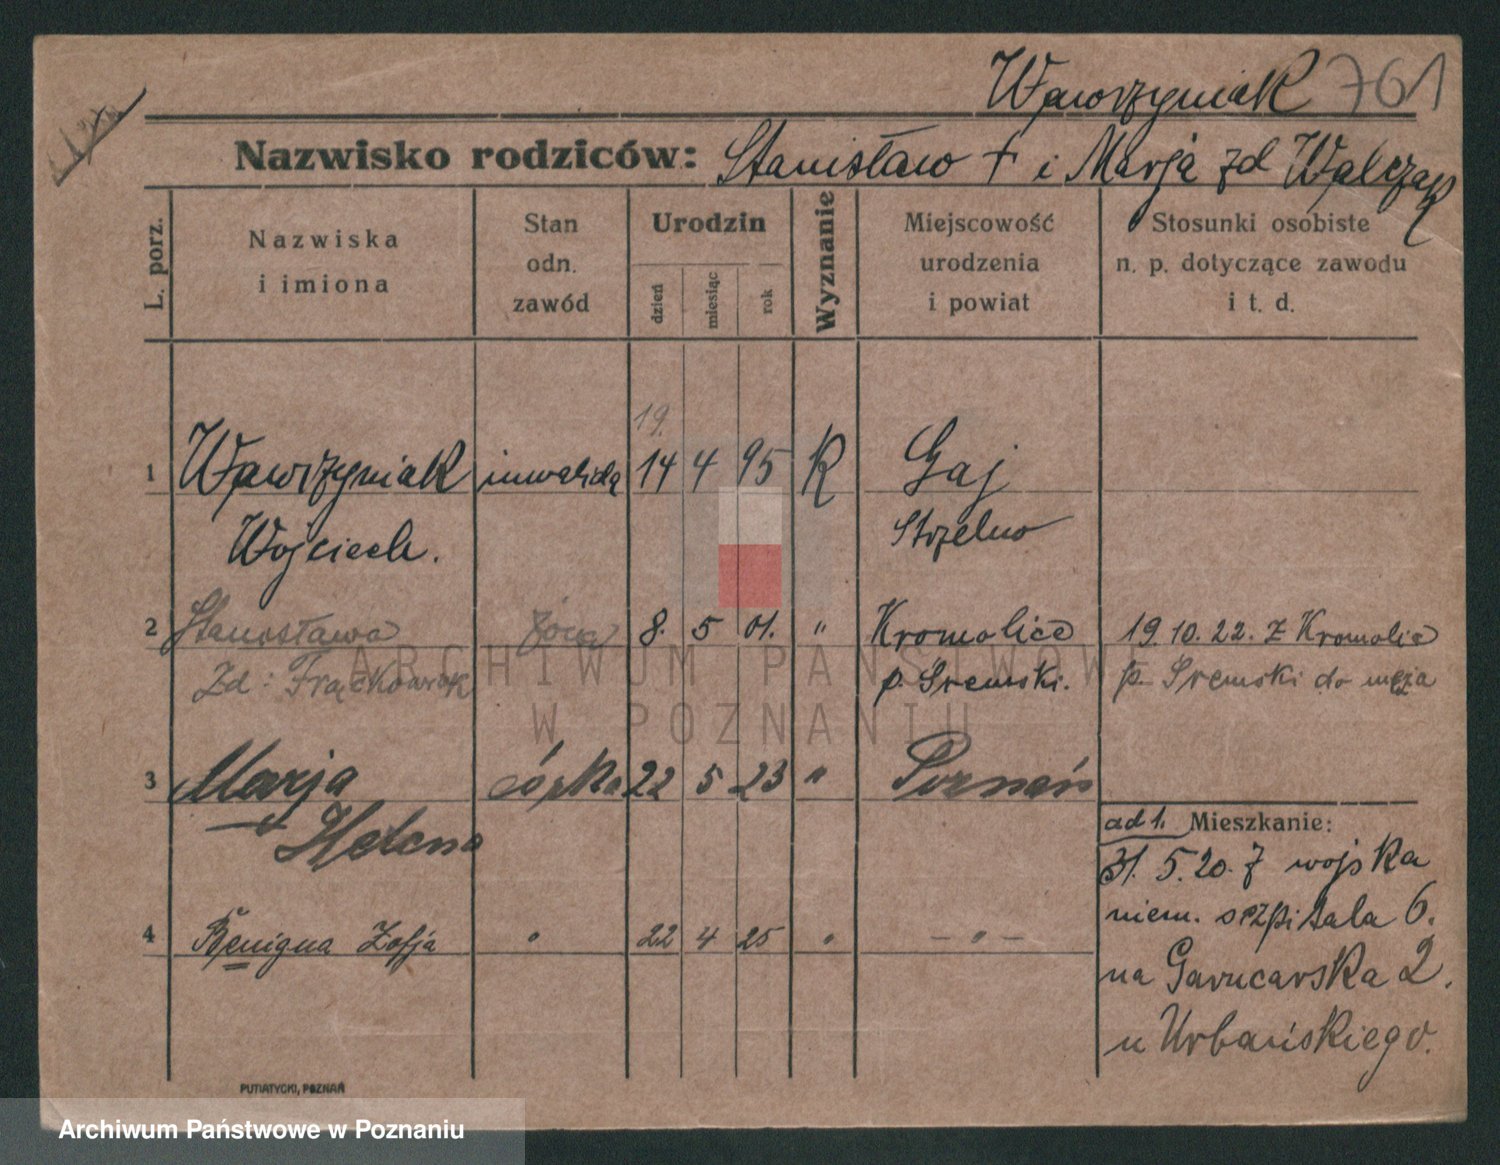 Wawrzyniak 761
Nazwisko rodziców: Stanisław + i Marja zd Walczak
L. porz.
Nazwiska i imiona
Stan odn. zawód
Urodzin
dzień
miesiąc
rok
Wyznanie
Miejscowość urodzenia i powiat
Stosunki osobiste n. p. dotyczące zawodu i t. d.
19.
1 Wawrzyniak inwalida 14 4 95 K Gaj
Wojciech. Strzelno
2 Stanisława żona 8. 5 01. " Kromolice 19.10.22. z Kromolic
Zd: Frąckowiak p. Śremski. p. Śremski do męża
3 Marja córka 22 5 23 " Poznań
Helena
ad 1. Mieszkanie:
31. 5. 20. z wojska
niem. szpitala 6.
4 Benigna Zofja " 22 4 25 " - " -
na Garncarska 2.
u Urbańskiego.
PUTIATYCKI, POZNAŃ
ARCHIWUM PAŃSTWOWE
W POZNANIU
Archiwum Państwowe w Poznaniu